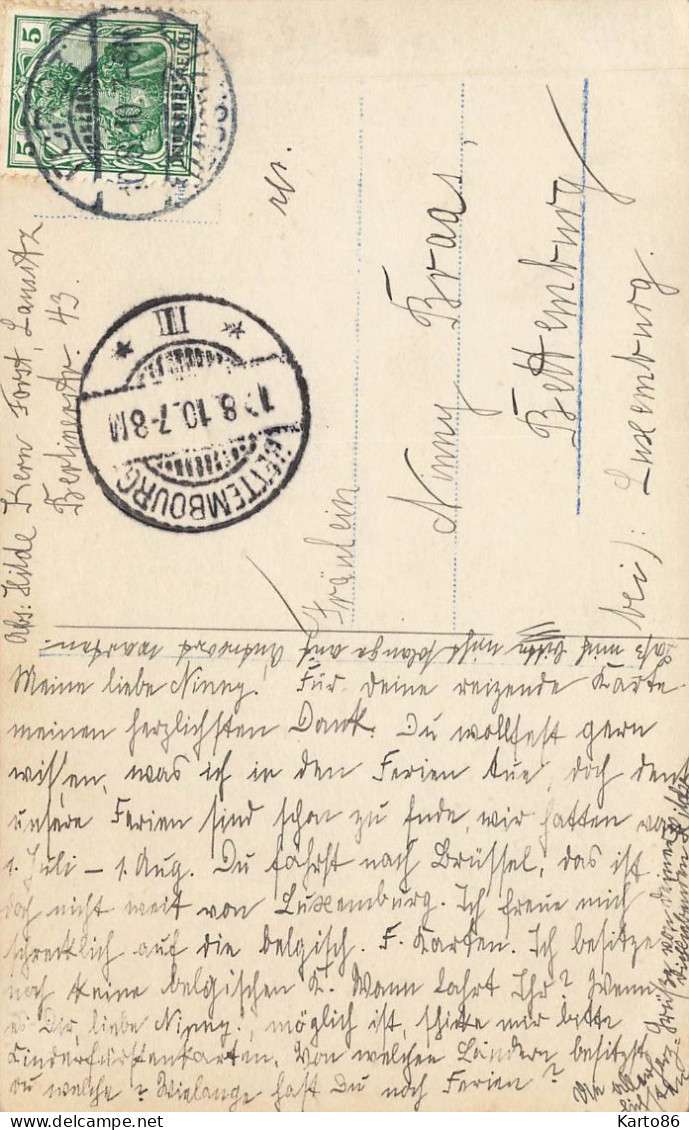 5 5
DEUTSCHES REICH
10.8.10.
Abs: Hilde Kern Forst, Lausitz
Berlinerstr. 43.
BETTEMBOURG
12.8.10.7-8M
* III *
An.
Fräulein
Ninny Braas,
Bettemburg
bei): Luxemburg.
Laß mich bitte nicht solange auf Andword waarten.
Meine liebe Ninny! Für deine reizende Karte
meinen herzlichsten Dank. Du wolltest gern
wissen, was ich in den Ferien tue, doch den
unsere Ferien sind schon zu Ende, wir hatten vom
1. Juli – 1. Aug. Du fährst nach Brüssel, das ist
doch nicht weit von Luxemburg. Ich freue mich
schrecklich auf die belgisch. F. Karten. Ich besitze
noch keine belgischen K. Wann fahrt Ihr? Wenn
es Dir, liebe Ninny, möglich ist, schicke mir bitte
Kinderfürstenkarten. Von welchen Ländern besitzt
du welche? Wielange hast Du noch Ferien?
Grüße von deiner
Karto86